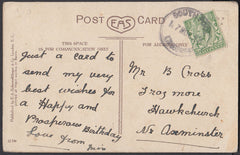 POST CARD
EAS
THIS SPACE
IS FOR COMMUNICATION ONLY
Just a card to
send my very
best wishes for
a Happy and
Prosperous Birthday
Love from
Mr B Cross
Frogmore
Hawkchurch
Nr Axminster
SOUTH